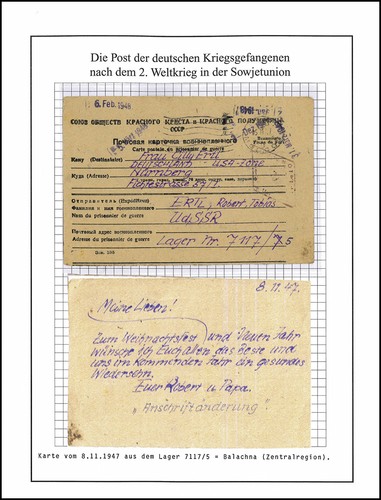 Die Post der deutschen Kriegsgefangenen
nach dem 2. Weltkrieg in der Sowjetunion
6. Feb. 1948
СОЮЗ ОБЩЕСТВ КРАСНОГО КРЕСТА и КРАСНОГО ПОЛУМЕСЯЦА
СССР
Почтовая карточка военнопленного
Carte postale du prisonnier de guerre
Кому (Destinataire) Frau Cilly Ertl
Deutschland - USA-Zone
Куда (Adresse) Nürnberg
Fichtestrasse 37/1
Отправитель (Expéditeur) ERTL, Robert, Tobias
Фамилия и имя военнопленного
Nom du prisonnier de guerre UdSSR
Почтовый адрес военнопленного
Adresse du prisonnier de guerre Lager Nr. 7117/75
8.11.47.
Meine Lieben!
Zum Weihnachtsfest und Neuen Jahr
wünsche ich Euch allen das Beste und
uns im kommenden Jahr ein gesundes
Wiedersehn.
Euer Robert u. Papa.
"Anschriftänderung"
Karte vom 8.11.1947 aus dem Lager 7117/5 = Balachna (Zentralregion).